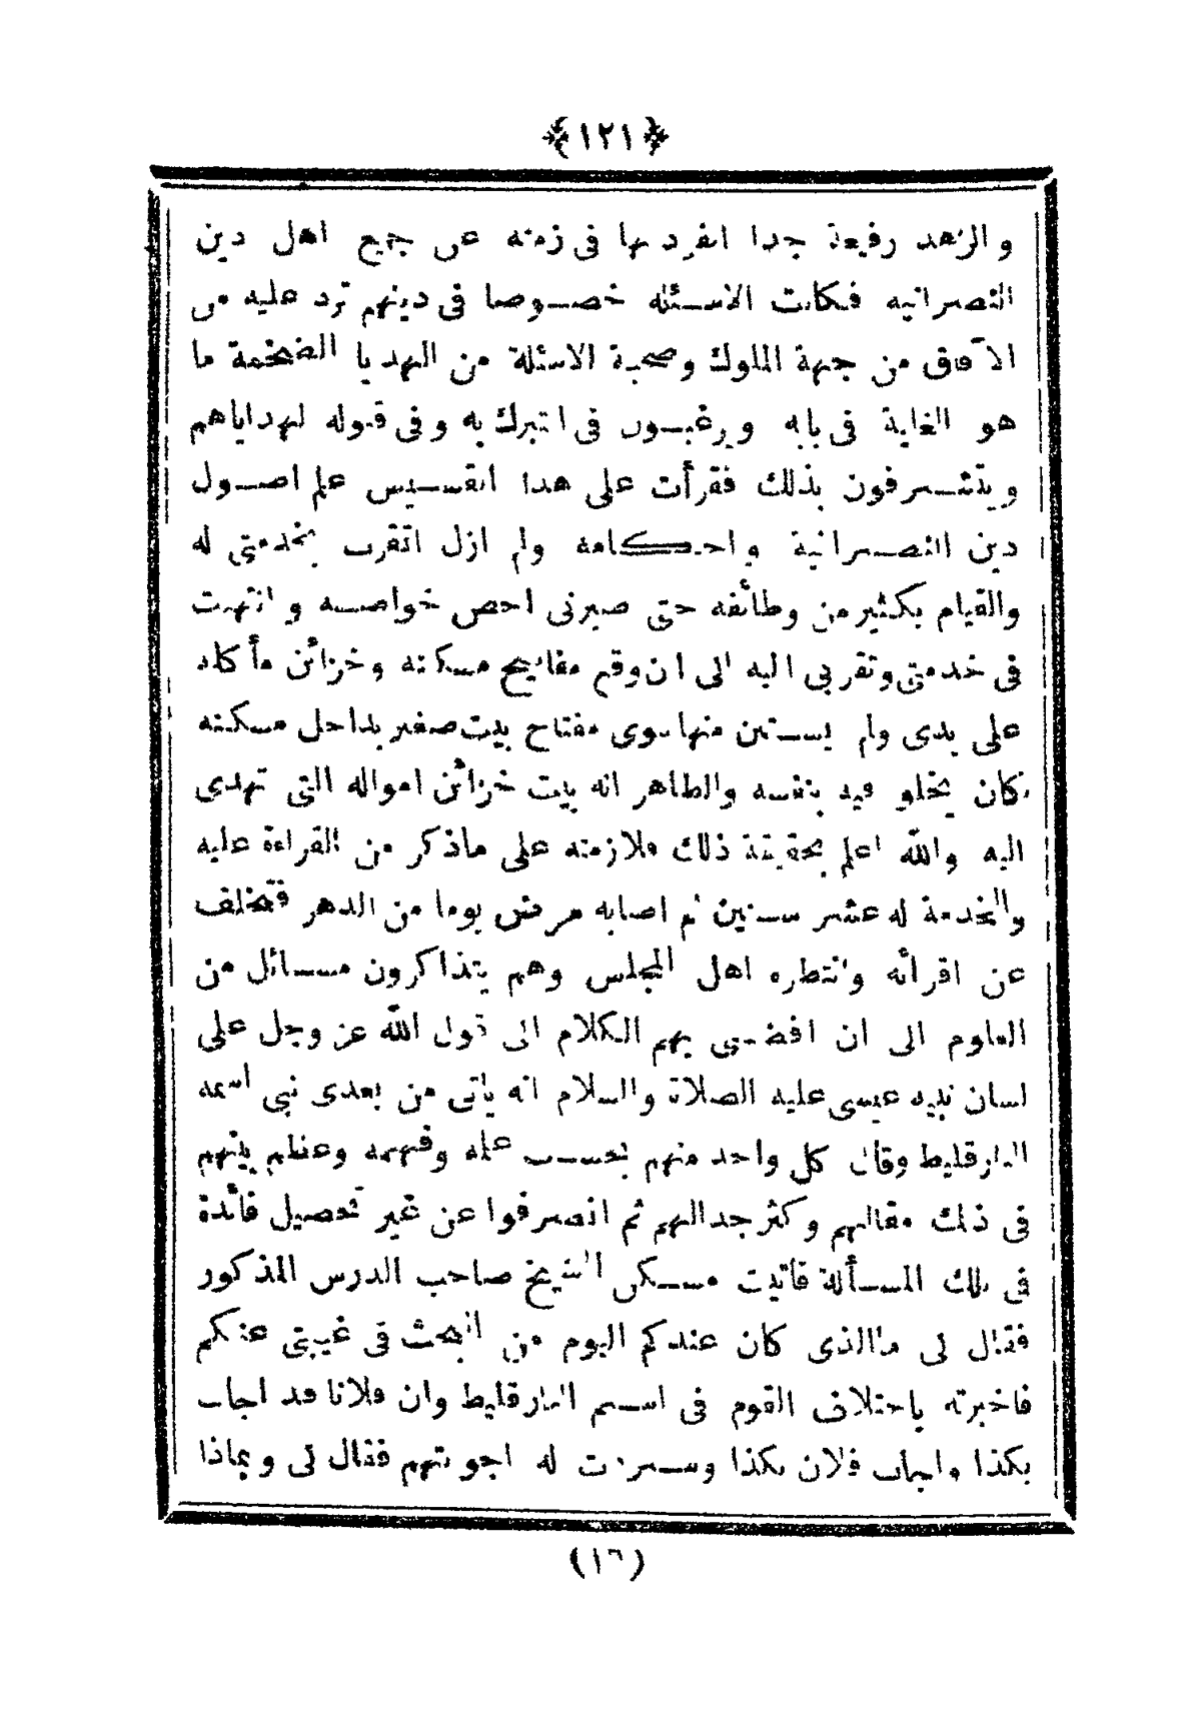 ﴿١٢١﴾
والزهد رفيعة جدا انفرد بها فى زمنه عن جميع اهل دين
النصرانيه فكانت الاسئله خصوصا فى دينهم ترد عليه من
الآفاق من جهة الملوك وصحبة الاسئلة من الهديا الضخمة ما
هو الغاية فى بابه ويرغبون فى التبرك به وفى قبوله لهداياهم
ويتشرفون بذلك فقرأت على هذا القسيس علم اصول
دين النصرانية واحكامه ولم ازل اتقرب بخدمتى له
والقيام بكثير من وظائفه حتى صيرنى اخص خواصه وانتهت
فى خدمتى وتقربى اليه الى ان وقع مفاتيح مسكنه وخزائن مأكله
على يدى ولم يستثن منها سوى مفتاح بيت صغير بداخل مسكنه
كان يخلو فيه بنفسه والظاهر انه بيت خزائن امواله التى تهدى
اليه والله اعلم بحقيقة ذلك فلازمته على ماذكر من القراءة عليه
والخدمة له عشر سنين ثم اصابه مرض يوما من الدهر فتخلف
عن اقرائه وانتظره اهل المجلس وهم يتذاكرون مسائل من
العلوم الى ان افضى بهم الكلام الى قول الله عز وجل على
لسان نبيه عيسى عليه الصلاة والسلام انه يأتى من بعدى نبى اسمه
البارقليط وقال كل واحد منهم بحسب علمه وفهمه وعظم بينهم
فى ذلك مقالهم وكثر جدالهم ثم انصرفوا عن غير تحصيل فائدة
فى تلك المسألة فاتيت مسكن الشيخ صاحب الدرس المذكور
فقال لى ماالذى كان عندكم اليوم من البحث فى غيبتى عنكم
فاخبرته باختلاف القوم فى اسم البارقليط وان فلانا قد اجاب
بكذا واجاب فلان بكذا وسردت له اجوبتهم فقال لى وبماذا
(١٦)